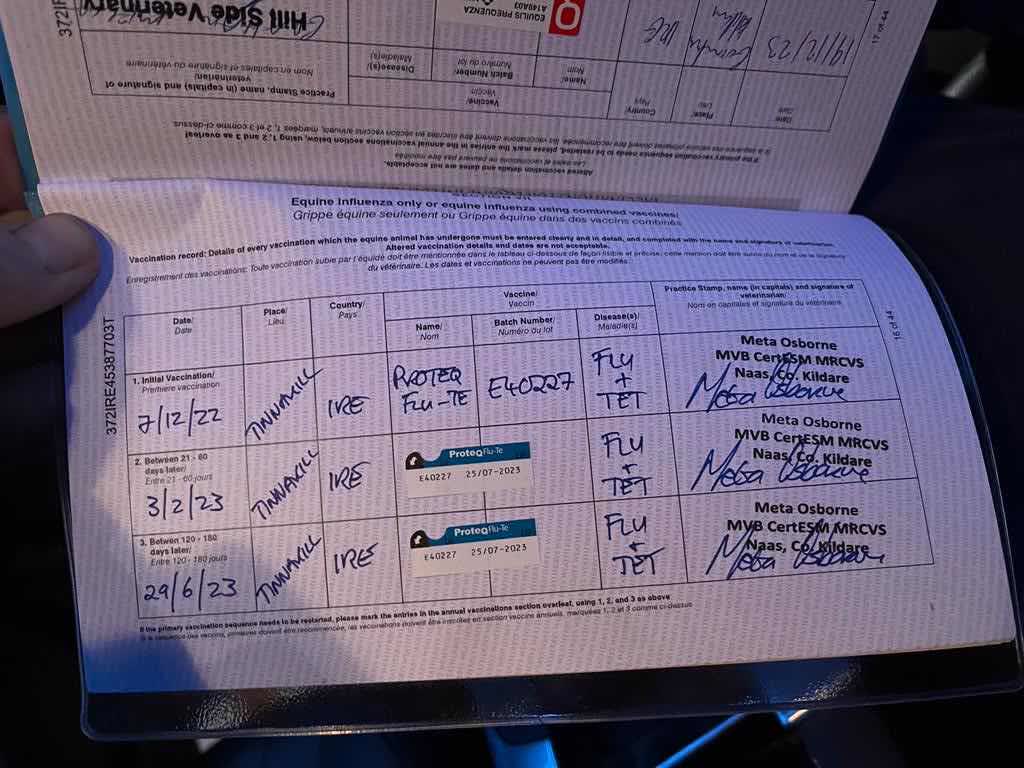 372IRE45387703T
Hill Side Veterinary
EQUILIS PREQUENZA
A149A03
IRE
19/12/23
17 of 44
Practice Stamp, name (in capitals) and signature of
veterinarian/
Nom en capitales et signature du vétérinaire
Disease(s)/
Maladie(s)
Batch Number/
Numéro du lot
Name/
Nom
Vaccine/
Vaccin
Country/
Pays
Place/
Lieu
Date/
Date
If the primary vaccination sequence needs to be restarted, please mark the entries in the annual vaccinations section below, using 1, 2 and 3 as overleaf
Altered vaccination details and dates are not acceptable.
Les dates et vaccinations ne peuvent pas être modifiés
Equine Influenza only or equine influenza using combined vaccines/
Grippe équine seulement ou Grippe équine dans des vaccins combinés
Vaccination record: Details of every vaccination which the equine animal has undergone must be entered clearly and in detail, and completed with the name and signature of veterinarian.
Altered vaccination details and dates are not acceptable.
Enregistrement des vaccinations: Toute vaccination subie par l'équidé doit être mentionnée dans le tableau ci-dessous de façon lisible et précise; cette mention doit être suivie du nom et de la signature
du vétérinaire. Les dates et vaccinations ne peuvent pas être modifiés.
Date/
Date
Place/
Lieu
Country/
Pays
Vaccine/
Vaccin
Name/
Nom
Batch Number/
Numéro du lot
Disease(s)/
Maladie(s)
Practice Stamp, name (in capitals) and signature of
veterinarian/
Nom en capitales et signature du vétérinaire
16 of 44
1. Initial Vaccination/
Première vaccination
7/12/22
TINNAKILL
IRE
PROTEQ
FLU-TE
E40227
FLU
+
TET
Meta Osborne
MVB CertESM MRCVS
Naas, Co. Kildare
Meta Osborne
2. Between 21 - 60
days later/
Entre 21 - 60 jours
3/2/23
TINNAKILL
IRE
ProteqFlu-Te
E40227 25/07-2023
FLU
+
TET
Meta Osborne
MVB CertESM MRCVS
Naas, Co. Kildare
Meta Osborne
3. Betwen 120 - 180
days later/
Entre 120 - 180 jours
29/6/23
TINNAKILL
IRE
ProteqFlu-Te
E40227 25/07-2023
FLU
+
TET
Meta Osborne
MVB CertESM MRCVS
Naas, Co. Kildare
Meta Osborne
If the primary vaccination sequence needs to be restarted, please mark the entries in the annual vaccinations section overleaf, using 1, 2, and 3 as above